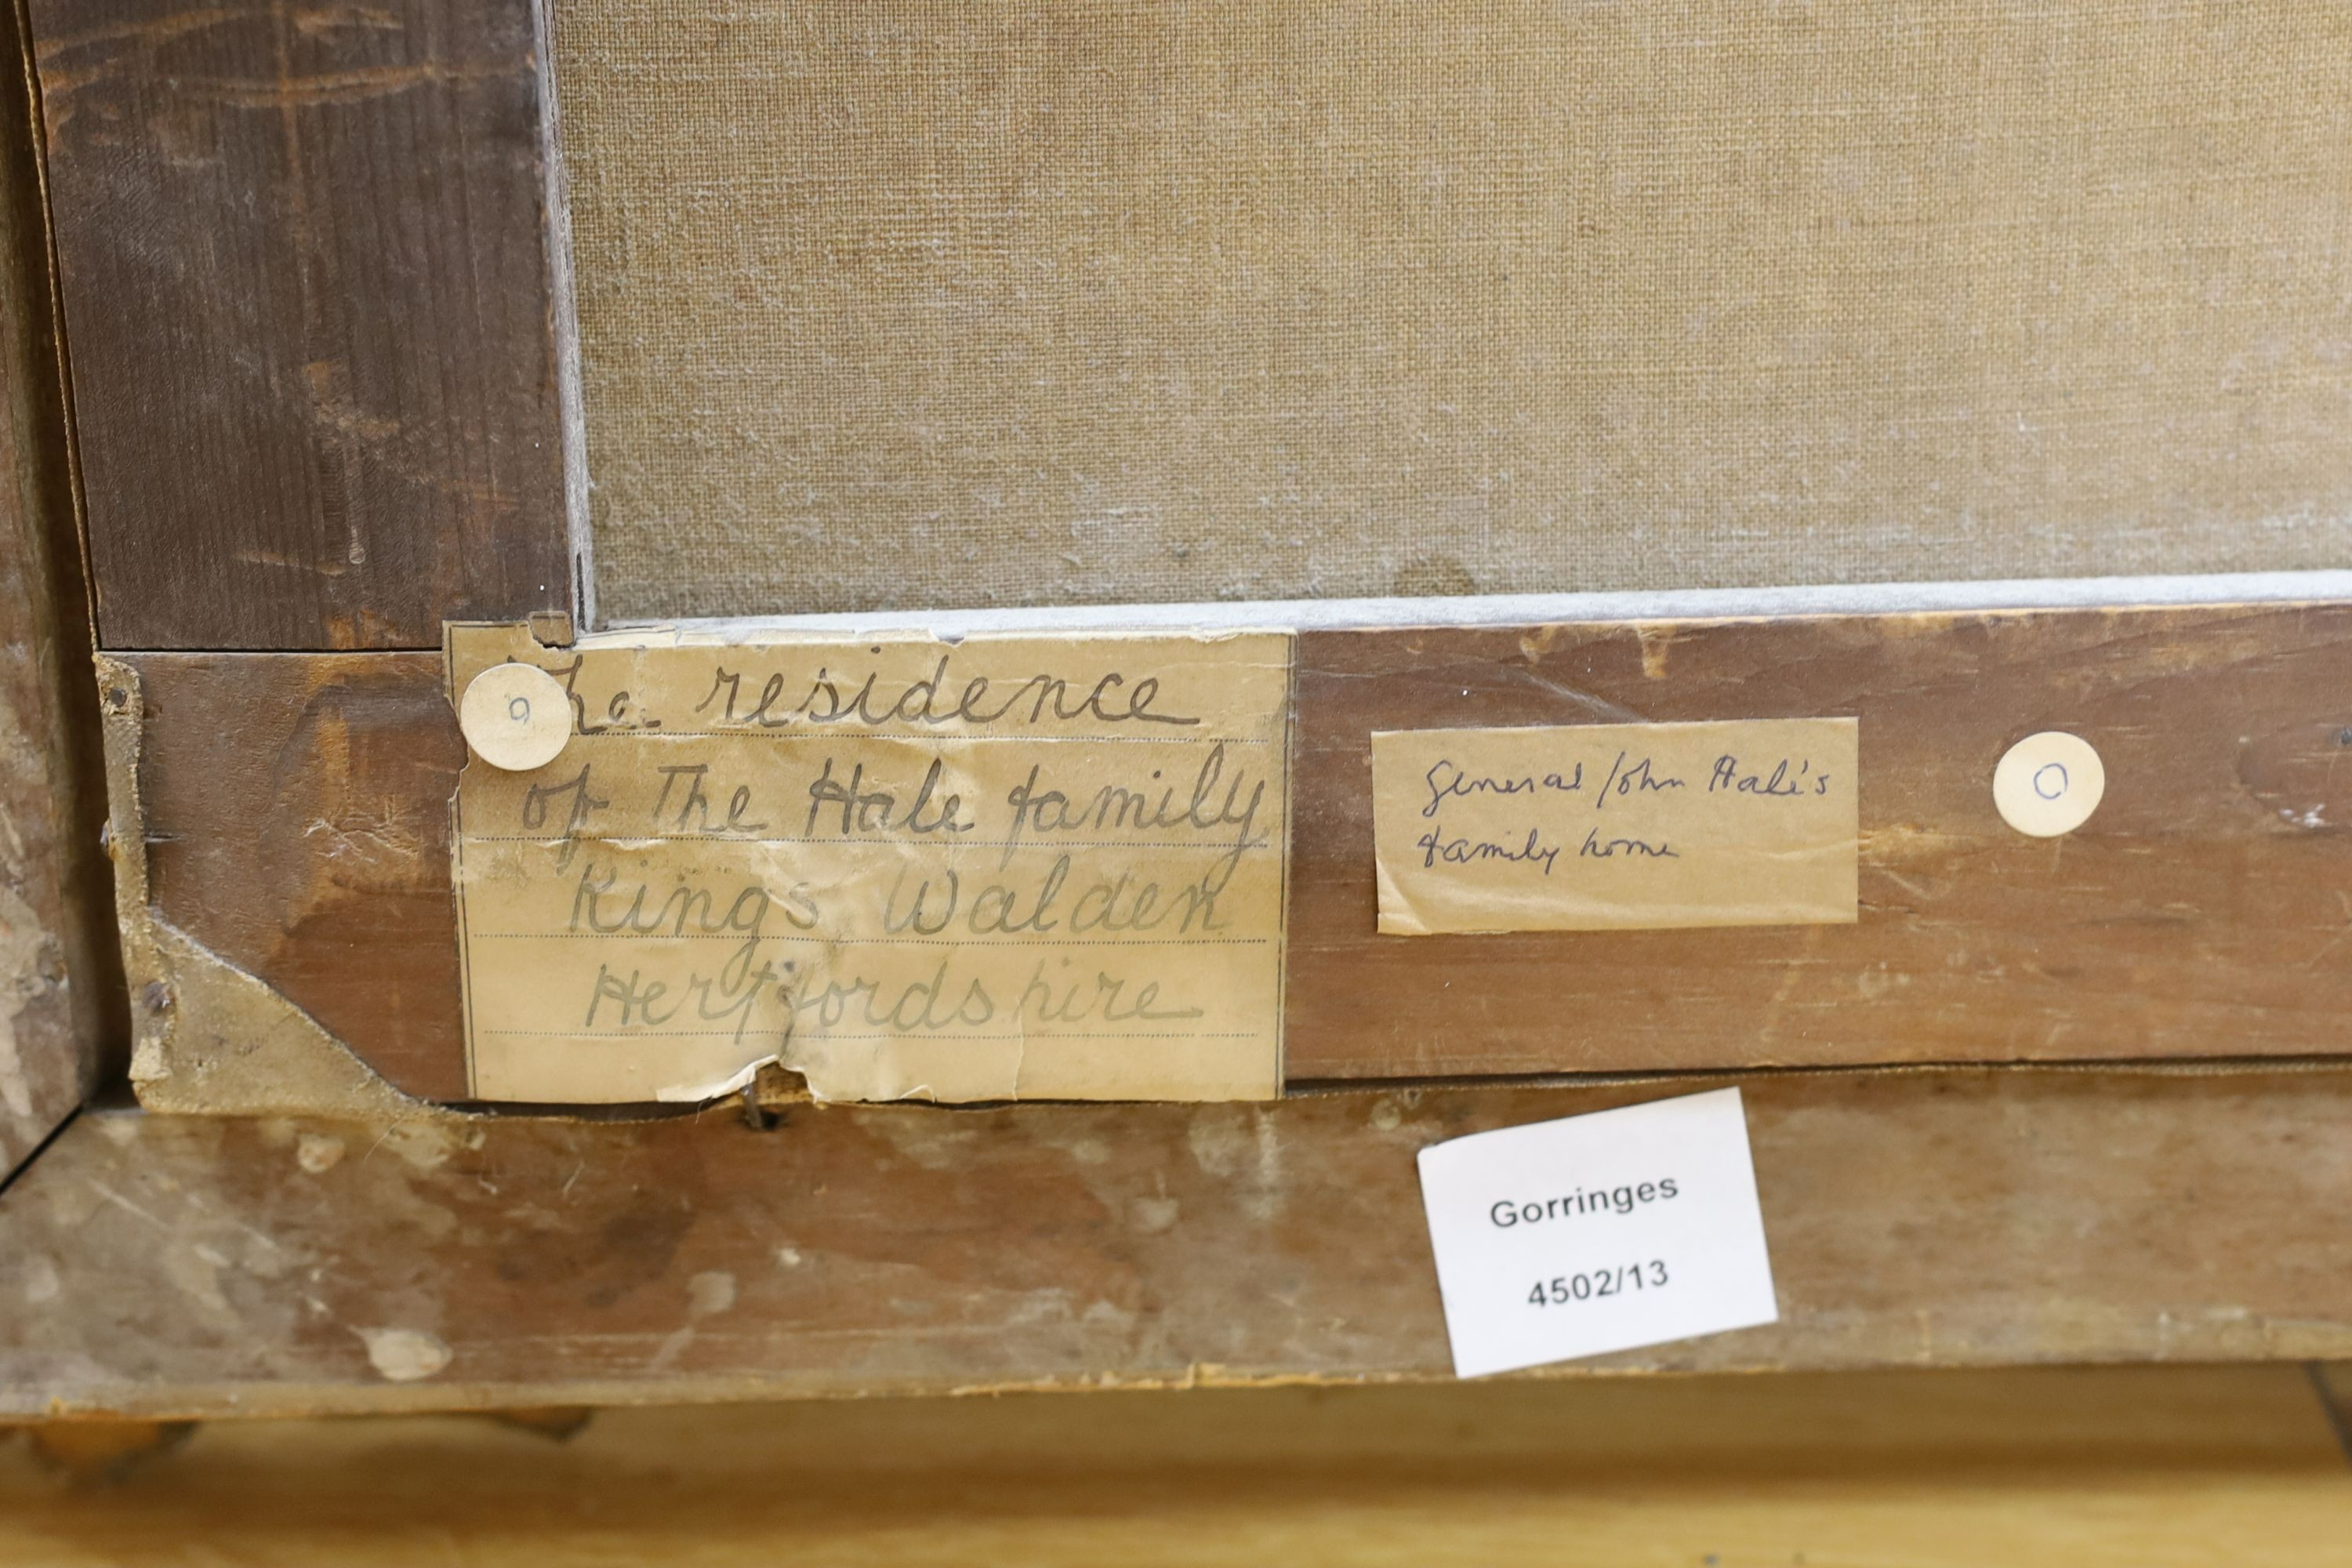 The residence
of The Hale family
Kings Walden
Hertfordshire
9
General John Hale's
family home
O
Gorringes
4502/13